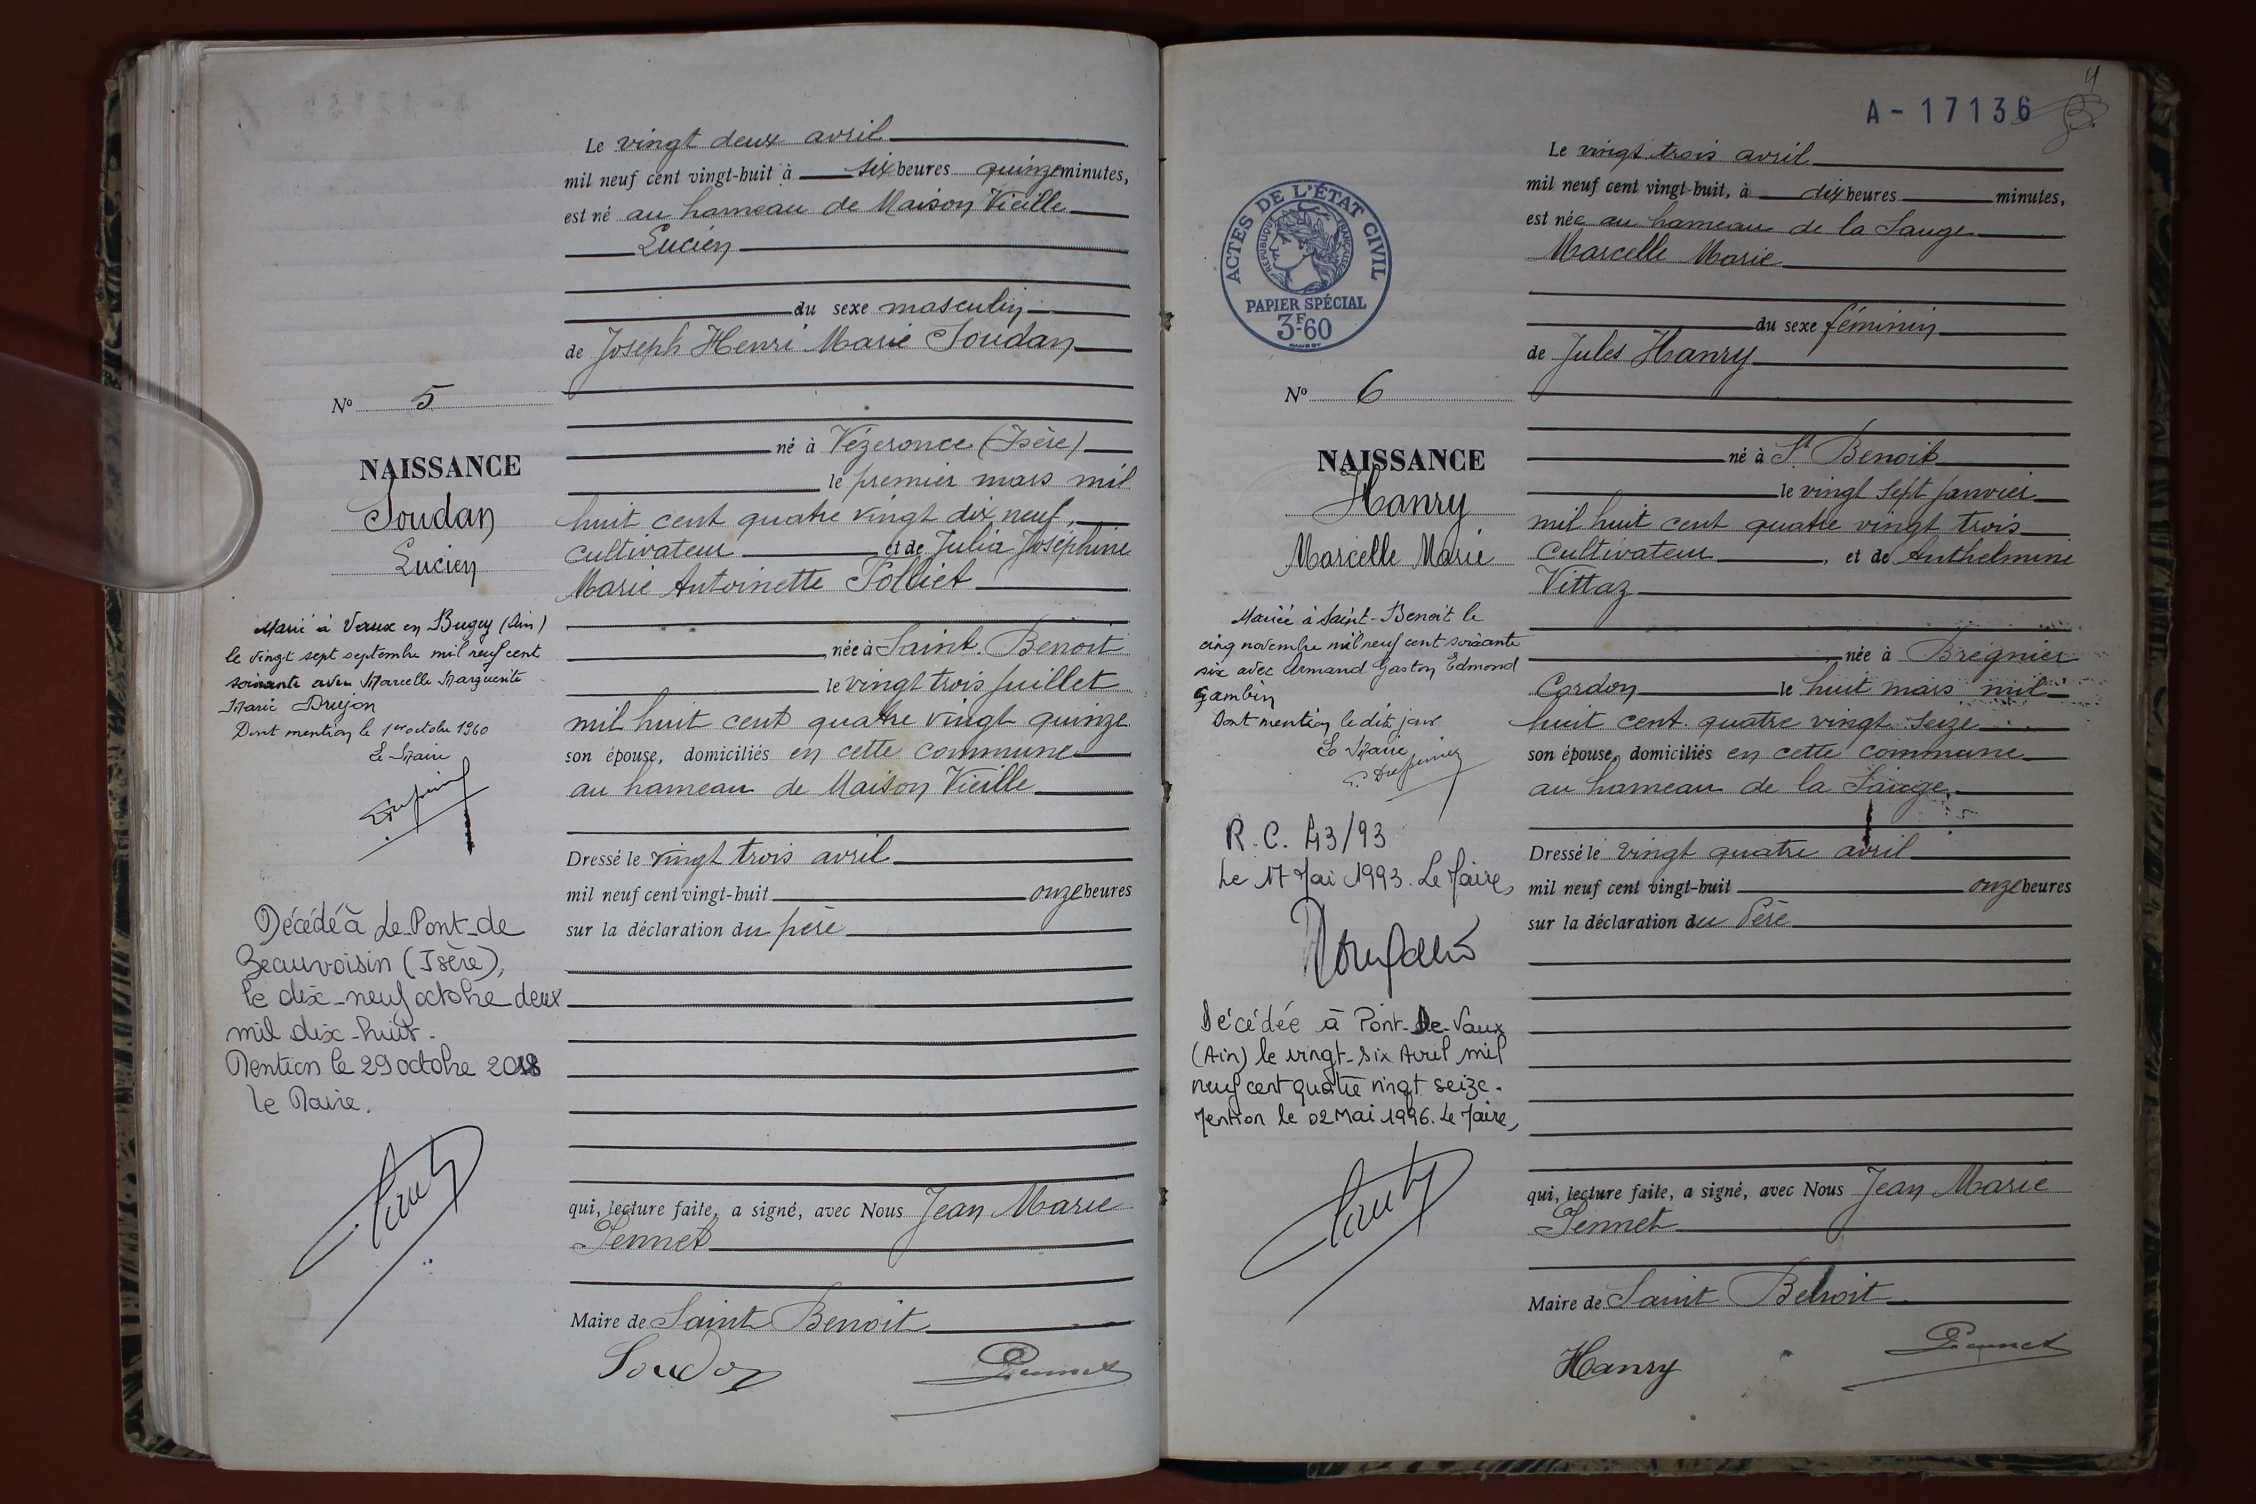 Le vingt deux avril
mil neuf cent vingt-huit à six heures quinze minutes,
est né au hameau de Maison Vieille
Lucien
du sexe masculin
de Joseph Henri Marie Soudan
né à Vézeronce (Isère)
le premier mars mil
huit cent quatre vingt dix neuf,
cultivateur et de Julia Joséphine
Marie Antoinette Polliet
née à Saint. Benoit
le vingt trois juillet
mil huit cent quatre vingt quinze
son épouse, domiciliés en cette commune
au hameau de Maison Vieille
Dressé le vingt trois avril
mil neuf cent vingt-huit onze heures
sur la déclaration du père
qui, lecture faite, a signé, avec Nous Jean Marie
Pennet
Maire de Saint Benoit
Soudan
Pennet
N° 5
NAISSANCE
Soudan
Lucien
Marié à Vaux en Bugey (Ain)
le vingt sept septembre mil neuf cent
soixante avec Marcelle Marguerite
Marie Drujon
Dont mention le 1er octobre 1960
Le Maire
Décédé à Le-Pont-de
Beauvoisin (Isère),
le dix-neuf octobre deux
mil dix-huit.
Mention le 29 octobre 2018
le Maire.
4
A-17136
Le vingt trois avril
mil neuf cent vingt-huit, à dix heures minutes,
est née au hameau de la Sauge
Marcelle Marie
du sexe féminin
de Jules Hanry
né à St Benoit
le vingt sept janvier
mil huit cent quatre vingt trois
cultivateur, et de Anthelmine
Vittaz
née à Brégnier
Cordon le huit mars mil
huit cent. quatre vingt seize
son épouse, domiciliés en cette commune
au hameau de la Sauge.
Dressé le vingt quatre avril
mil neuf cent vingt-huit onze heures
sur la déclaration du Père
qui, lecture faite, a signé, avec Nous Jean Marie
Pennet
Maire de Saint Benoit
Hanry
Pennet
ACTES DE L'ÉTAT CIVIL
RÉPUBLIQUE FRANÇAISE
PAPIER SPÉCIAL
3F-60
N° 6
NAISSANCE
Hanry
Marcelle Marie
Mariée à Saint-Benoit le
cinq novembre mil neuf cent soixante
six avec Armand Gaston Edmond
Gambin
Dont mention le dit jour
Le Maire
R.C. 43/93
Le 17 Mai 1993. Le Maire,
Décédée à Pont-De-Vaux
(Ain) le vingt-six Avril mil
neuf cent quatre vingt seize.
Mention le 02 Mai 1996. Le Maire,